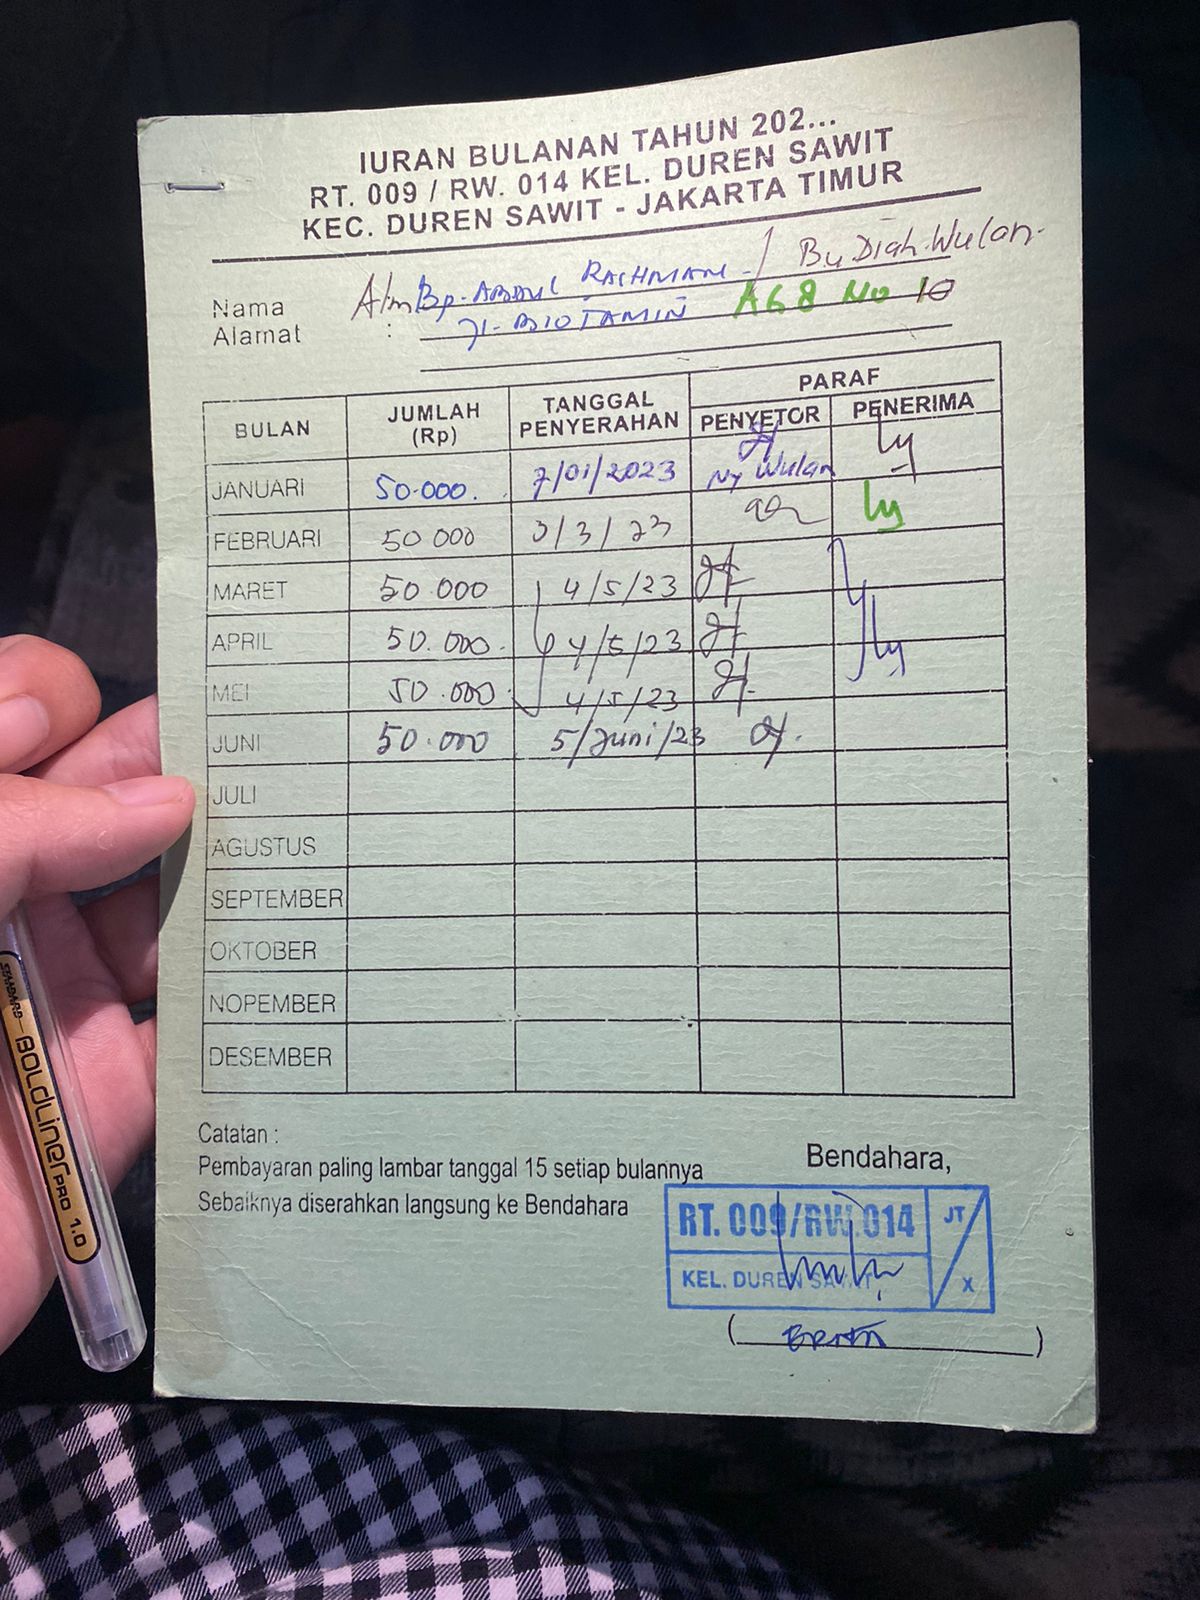 IURAN BULANAN TAHUN 202...
RT. 009 / RW. 014 KEL. DUREN SAWIT
KEC. DUREN SAWIT - JAKARTA TIMUR
Nama Alm Bp. ABDUL RACHMAN / Bu Diah Wulan
Alamat : A68 No 10
BULAN JUMLAH (Rp) TANGGAL PENYERAHAN PARAF
PENYETOR PENERIMA
JANUARI 50.000. 7/01/2023 Ny Wulan
FEBRUARI 50 000 3/3/23
MARET 50.000 4/5/23
APRIL 50.000. 4/5/23
MEI 50.000 4/5/23
JUNI 50.000 5/Juni/23
JULI
AGUSTUS
SEPTEMBER
OKTOBER
NOPEMBER
DESEMBER
Catatan :
Pembayaran paling lambar tanggal 15 setiap bulannya
Sebaiknya diserahkan langsung ke Bendahara
Bendahara,
RT. 009/RW. 014 JT/X
KEL. DUREN SAWIT
STANDARD BOLDLINER PRO 1.0